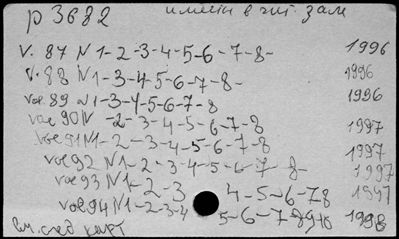 р 3682 имеем в чит. зале
V. 87 N 1-2-3-4-5-6-7-8- 1996
V. 88 N 1-3-4-5-6-7-8- 1996
vol 89 N 1-3-4-5-6-7-8 1996
vol 90 N -2-3-4-5-6-7-8 1997
vol 91 N 1-2-3-4-5-6-7-8 1997
vol 92 N 1-2-3-4-5-6-7-8- 1997
vol 93 N 1-2-3 4-5-6-7 8 1997
vol 94 N 1-2-3-4 5-6-7-8 9-10 1998
см. след. карт